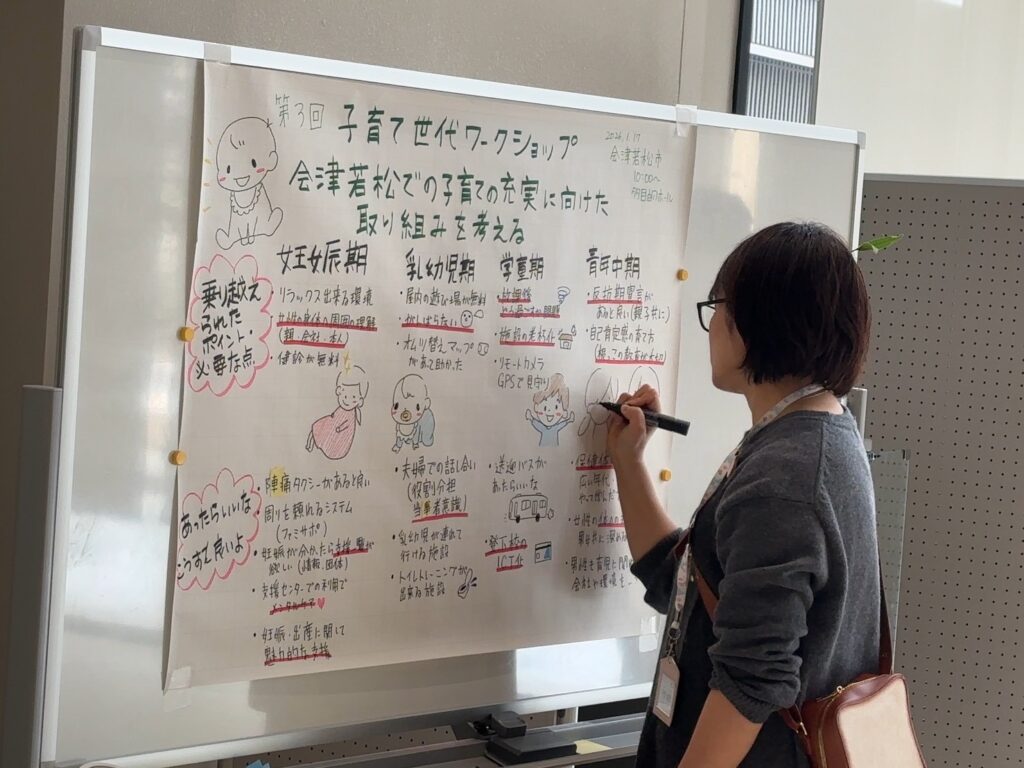 第3回 子育て世代ワークショップ
会津若松での子育ての充実に向けた
取り組みを考える
2026.1.17
会津若松市
10:00〜
妊娠期
乳幼児期
学童期
青年中期
乗り越え
られた
ポイント
必要な点
・リラックス出来る環境
・女性の身体の周囲の理解
(親・会社・本人)
・健診が無料
・屋内の遊び場が無料
・欲しばらない
・オムツ替えマップ
があって助かった
・放課後
・施設の老朽化
・リモートカメラ
GPSで見守り
・反抗期宣言が
あると良い(親子共に)
・自己肯定感の育て方
あったらいいな
こうすると良いよ
・陣痛タクシーがあると良い
・周りを頼れるシステム
(ファミサポ)
・妊娠が分かったら支援一覧が
欲しい(情報、団体)
・支援センターでの利用で
メンタルケア
・妊娠・出産に関して
魅力的な支援
・夫婦での話し合い
(役割分担
当事者意識)
・乳幼児が連れて
行ける施設
・トイレトレーニングが
出来る施設
・送迎バスが
あったらいいな
・登下校の
ICT化